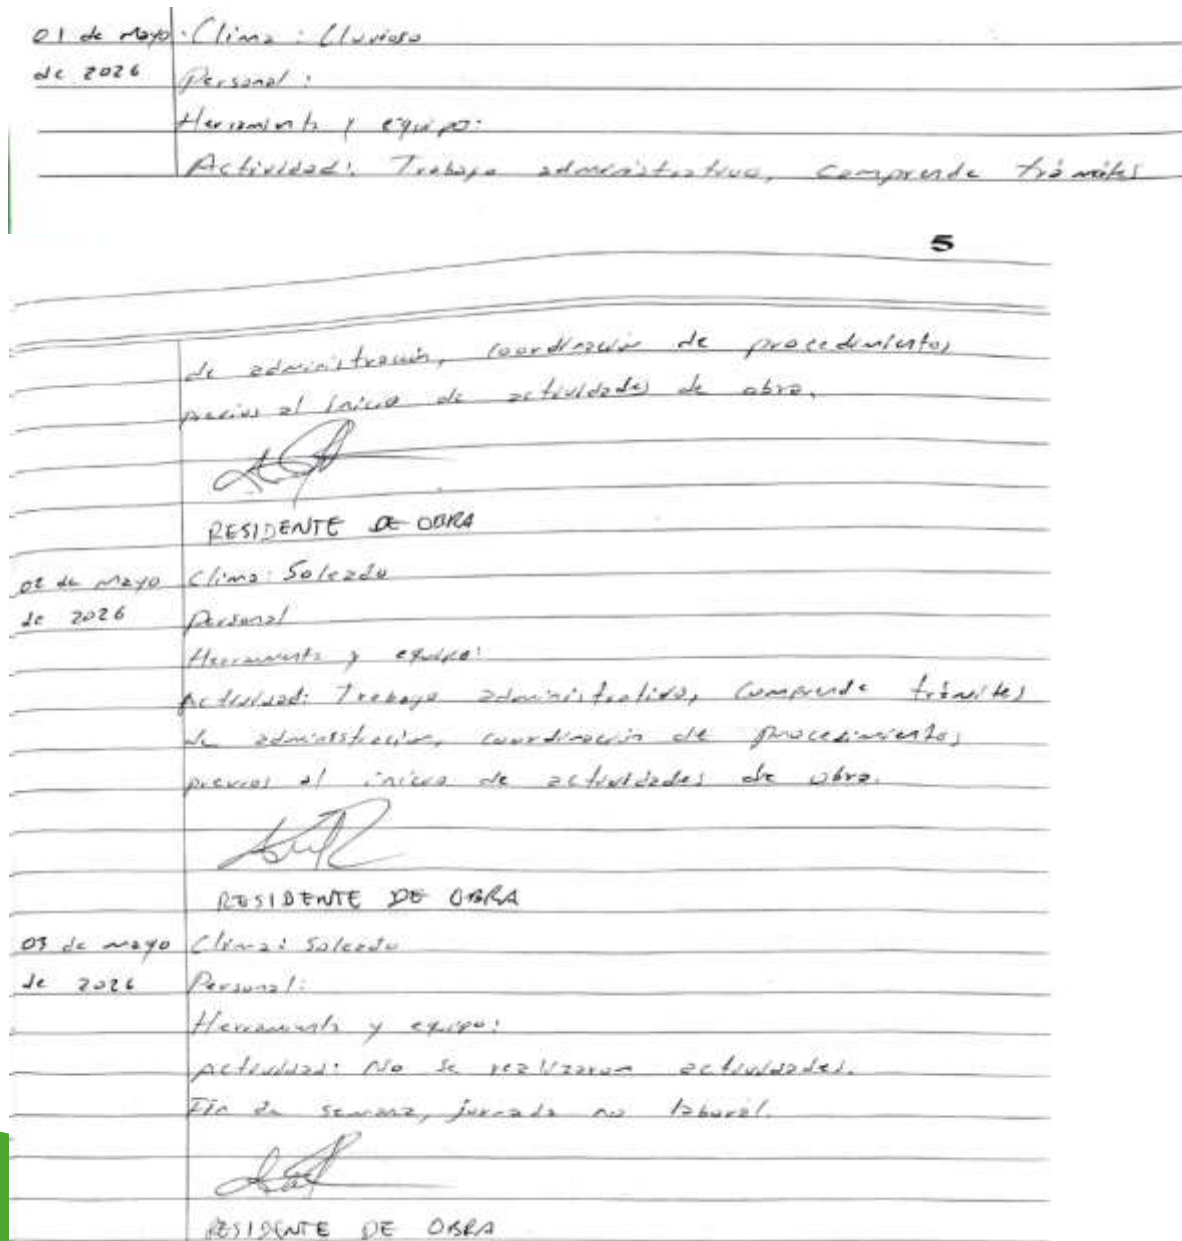 01 de mayo Clima: Lluvioso
de 2026 Personal:
Herramienta y equipo:
Actividad: Trabajo administrativo, comprende trámites
5
de administración, coordinación de procedimientos
previos al inicio de actividades de obra.
RESIDENTE DE OBRA
02 de mayo Clima: Soleado
de 2026 Personal
Herramienta y equipo:
Actividad: Trabajo administrativo, comprende trámites
de administración, coordinación de procedimientos
previos al inicio de actividades de obra.
RESIDENTE DE OBRA
03 de mayo Clima: Soleado
de 2026 Personal:
Herramienta y equipo:
Actividad: No se realizaron actividades.
Fin de semana, jornada no laboral.
RESIDENTE DE OBRA